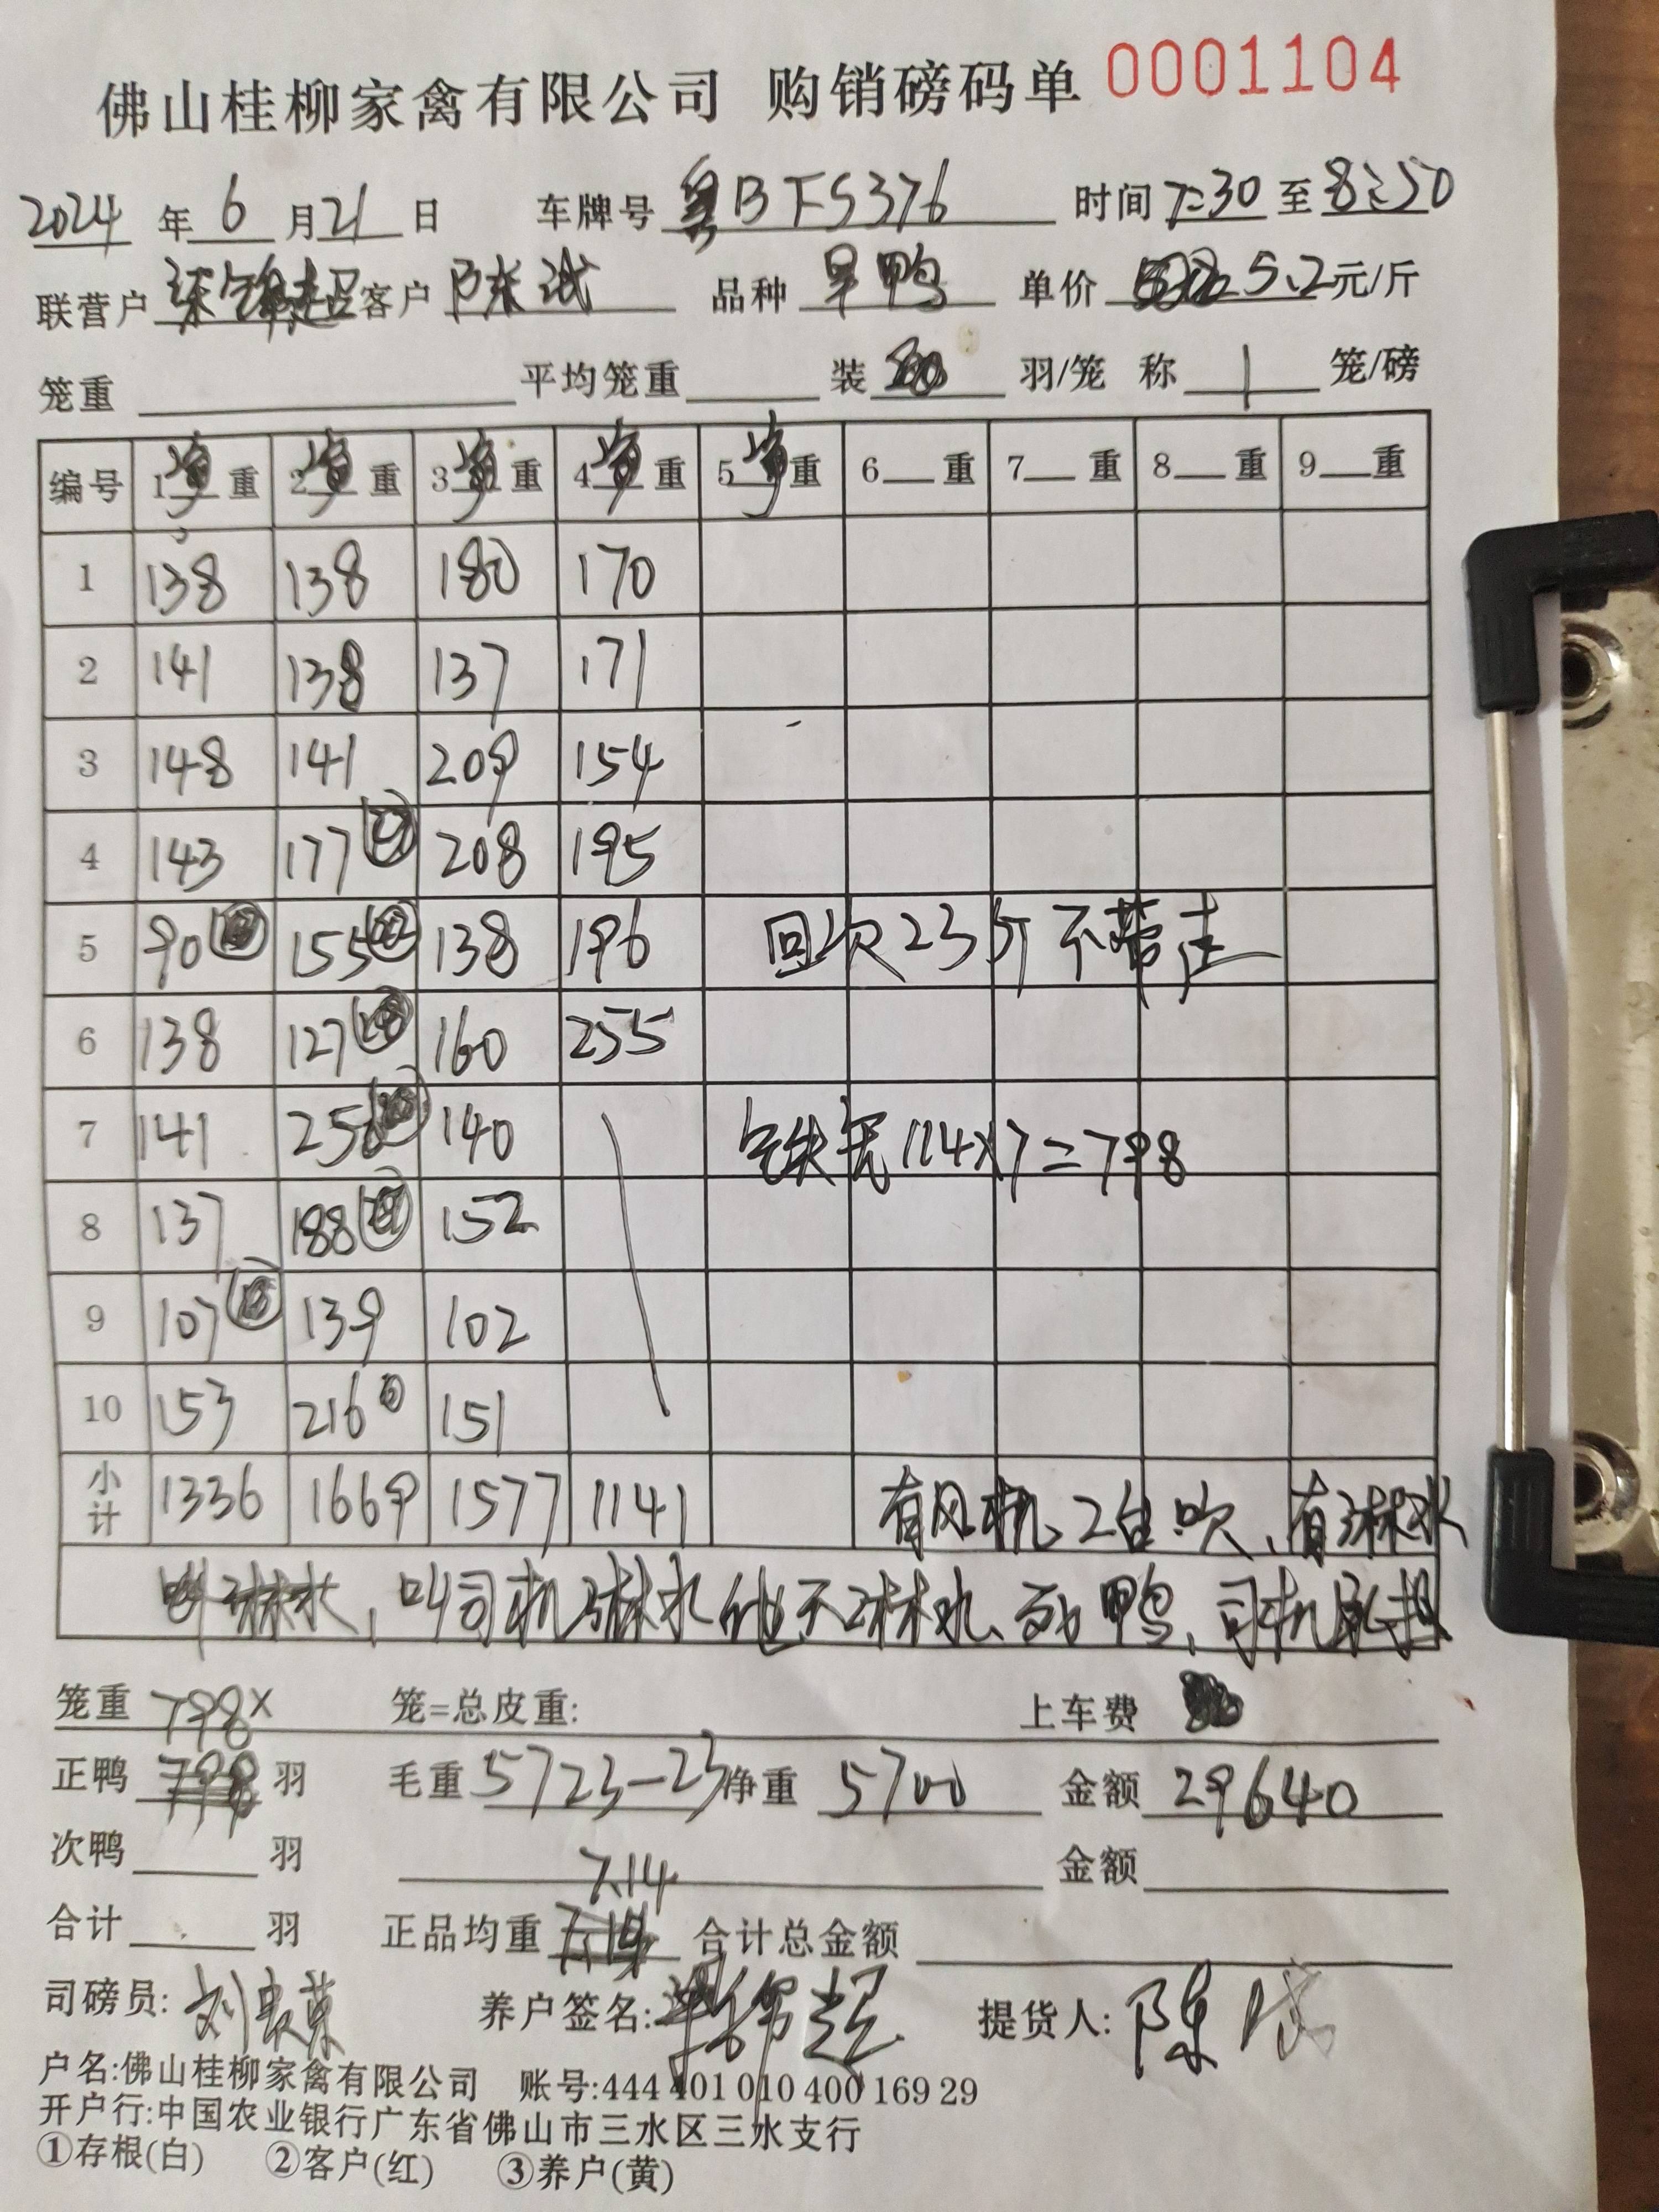 佛山桂柳家禽有限公司 购销磅码单 0001104
2024 年 6 月 21 日 车牌号 粤BFS376 时间 7:30 至 8:50
联营户 客户 陈诚 品种 旱鸭 单价 5.2 元/斤
笼重 平均笼重 装 羽/笼 称 1 笼/磅
编号 1 重 2 重 3 重 4 重 5 重 6 重 7 重 8 重 9 重
1 138 138 180 170
2 141 138 137 171
3 148 141 209 154
4 143 177 208 195
5 90 155 138 196 回次23斤不带走
6 138 127 160 255
7 141 250 140 铁笼114×7=798
8 137 188 152
9 107 139 102
10 153 216 151
小计 1336 1669 1577 1141 有风机2台吹、有淋水
叫司机淋水他不淋水、死鸭,司机承担
笼重 798× 笼=总皮重: 上车费
正鸭 羽 毛重 5723-23 净重 5700 金额 29640
次鸭 羽 金额
7.14
合计 羽 正品均重 合计总金额
司磅员: 养户签名: 提货人: 陈
户名:佛山桂柳家禽有限公司 账号:444 401 010 400 169 29
开户行:中国农业银行广东省佛山市三水区三水支行
①存根(白) ②客户(红) ③养户(黄)